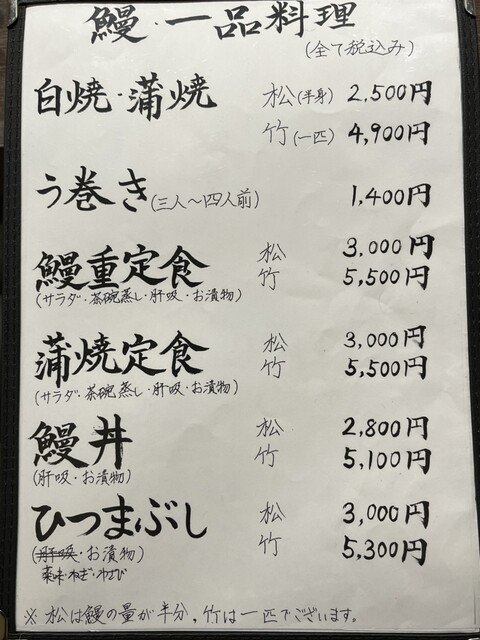 鰻・一品料理
(全て税込み)
白焼・蒲焼 松(半身) 2,500円
竹(一匹) 4,900円
う巻き(三人〜四人前) 1,400円
鰻重定食 松 3,000円
竹 5,500円
(サラダ・茶碗蒸し・肝吸・お漬物)
蒲焼定食 松 3,000円
竹 5,500円
(サラダ・茶碗蒸し・肝吸・お漬物)
鰻丼 松 2,800円
竹 5,100円
(肝吸・お漬物)
ひつまぶし 松 3,000円
竹 5,300円
(肝吸・お漬物)
薬味・ねぎ・わさび
※松は鰻の量が半分,竹は一匹でございます。